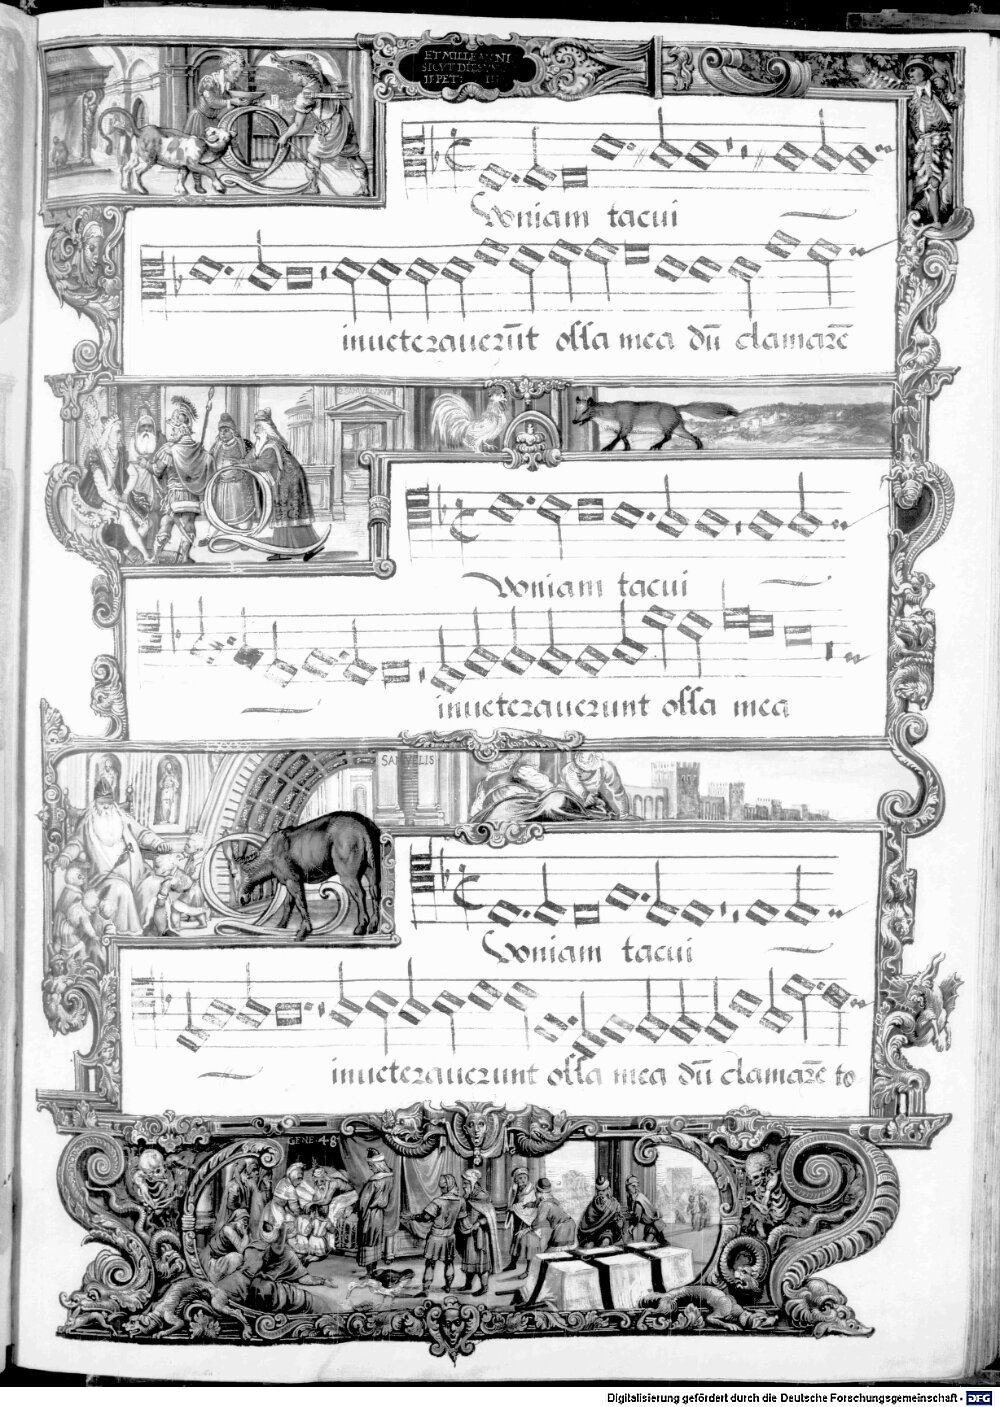 ET MILLE ANNI
SICVT DIES
II PET
Quoniam tacui
inueterauerūt ossa mea dū clamarē
Quoniam tacui
inueterauerunt ossa mea
SAMVELIS
Quoniam tacui
inueterauerunt ossa mea dū clamarē to
GENE · 48
Digitalisierung gefördert durch die Deutsche Forschungsgemeinschaft - DFG